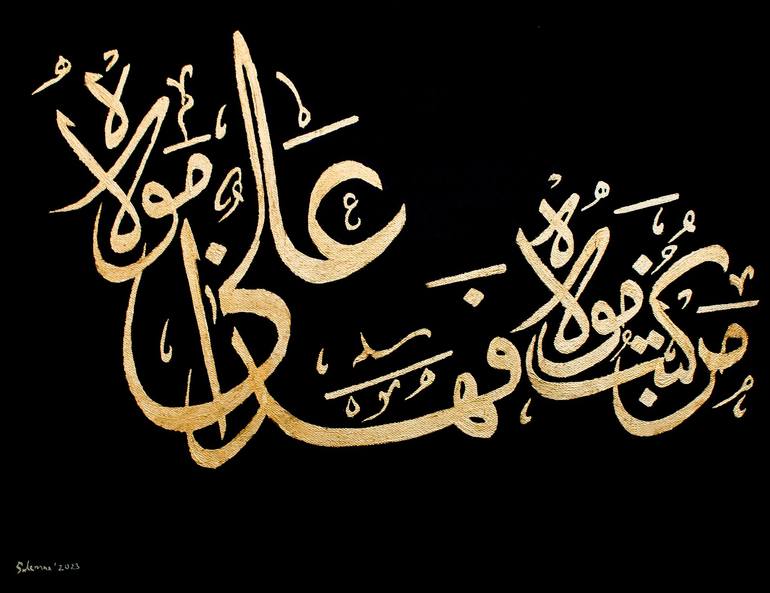 من كنت مولاه فهذا علي مولاه
2023